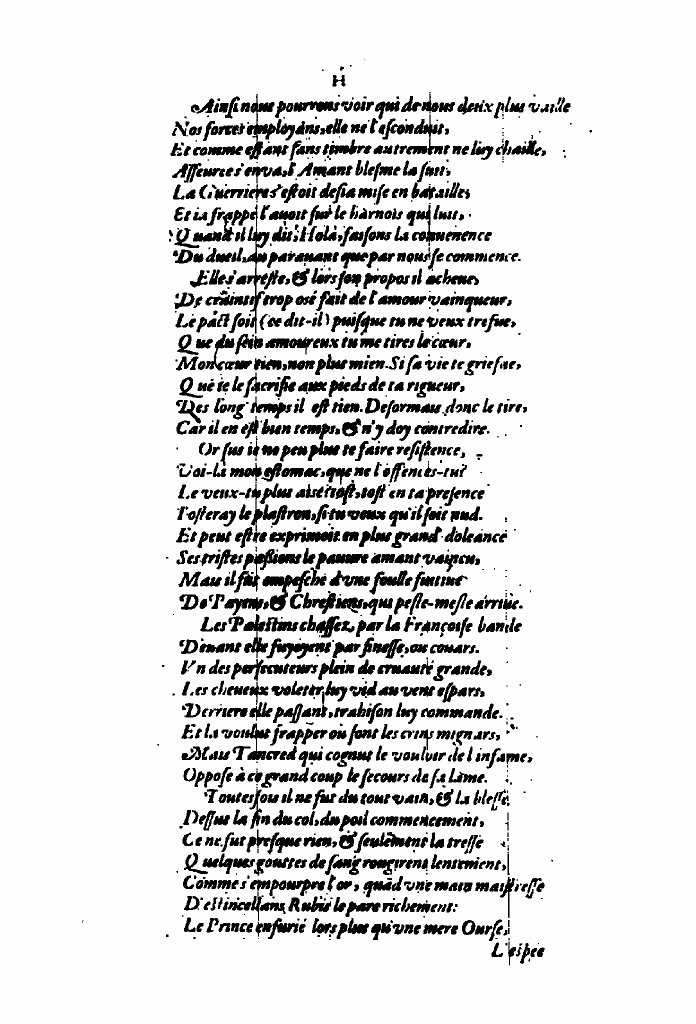 H
Ainsi nous pourrons voir qui de nous deux plus vaille
Nos forces employans, elle ne l'esconduit,
Et comme estant sans timbre autrement ne luy chaille,
Asseuree s'en va, l'Amant blesme la suit,
La Guerriere s'estoit desia mise en bataille,
Et ia frappé l'auoit sur le harnois qui luit,
Quand il luy dit, Holà, faisons la conuenence
Du dueil, au parauant que par nous se commence.
Elle s'arreste, & lors son propos il acheue,
De craintif trop osé fait de l'amour vainqueur,
Le pact soit (ce dit-il) puisque tu ne veux trefue,
Que du sein amoureux tu me tires le cœur,
Mon cœur tien, non plus mien. Si sa vie te griefue,
Que ie le sacrifie aux pieds de ta rigueur,
Des long temps il est tien. Desormais donc le tire,
Car il en est bien temps, & n'y doy contredire.
Or sus ie ne peu plus te faire resistence,
Voi-là mon estomac, que ne l'offences-tu?
Le veux-tu plus aisé? tost, tost en ta presence
I'osteray le plastron, si tu veux qu'il soit nud.
Et peut estre exprimoit en plus grand' doleance
Ses tristes passions le pauure amant vaincu,
Mais il fut empesché d'vne foulle suruiue
De Payens, & Chrestiens, qui pesle-mesle arriue.
Les Palestins chassez, par la Françoise bande
Deuant elle fuyoyent par finesse, ou couars.
Vn des persecuteurs plein de cruauté grande,
Les cheueux voleter luy vid au vent espars,
Derriere elle passant, trahison luy commande.
Et la voulut frapper où sont les crins mignars,
Mais Tancred qui cognut le vouloir de l'infame,
Oppose à ce grand coup le secours de sa lame.
Toutesfois il ne fut du tout vain, & la blesse
Dessus la fin du col, du poil commencement,
Ce ne fut presque rien, & seulement la tresse
Quelques gouttes de sang rougirent lentement,
Comme s'empourpre l'or, quād vne main maistresse
D'estincellans Rubis le pare richement:
Le Prince enfurié lors plus qu'vne mere Ourse,
L'espee